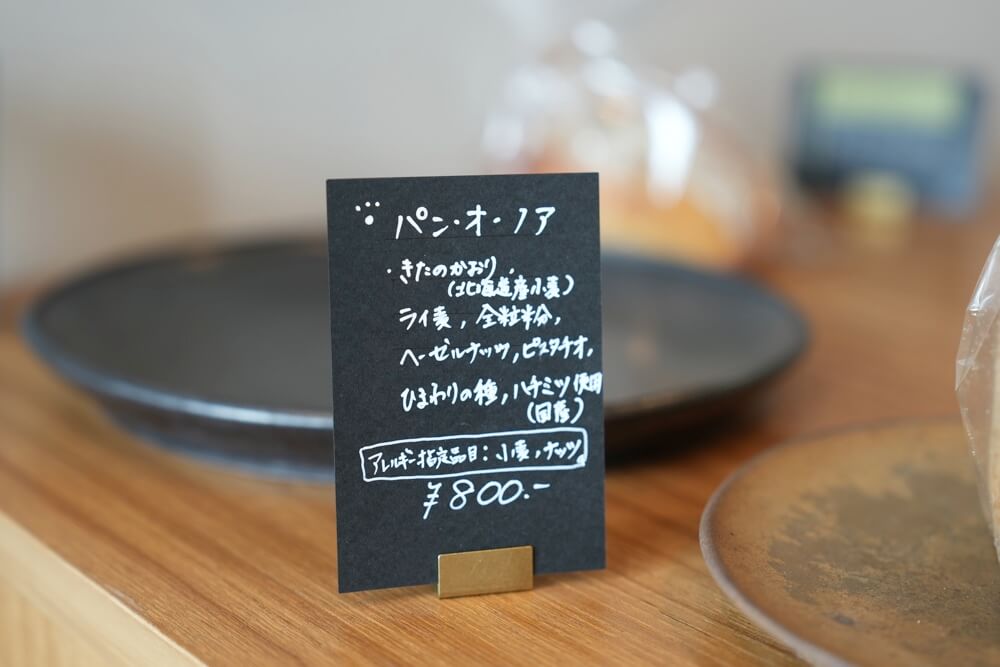 パン・オ・ノア
・きたのかおり,
(北海道産小麦)
ライ麦, 全粒粉,
ヘーゼルナッツ, ピスタチオ,
ひまわりの種, ハチミツ使用
(国産)
アレルギー指定品目：小麦, ナッツ
¥800.-